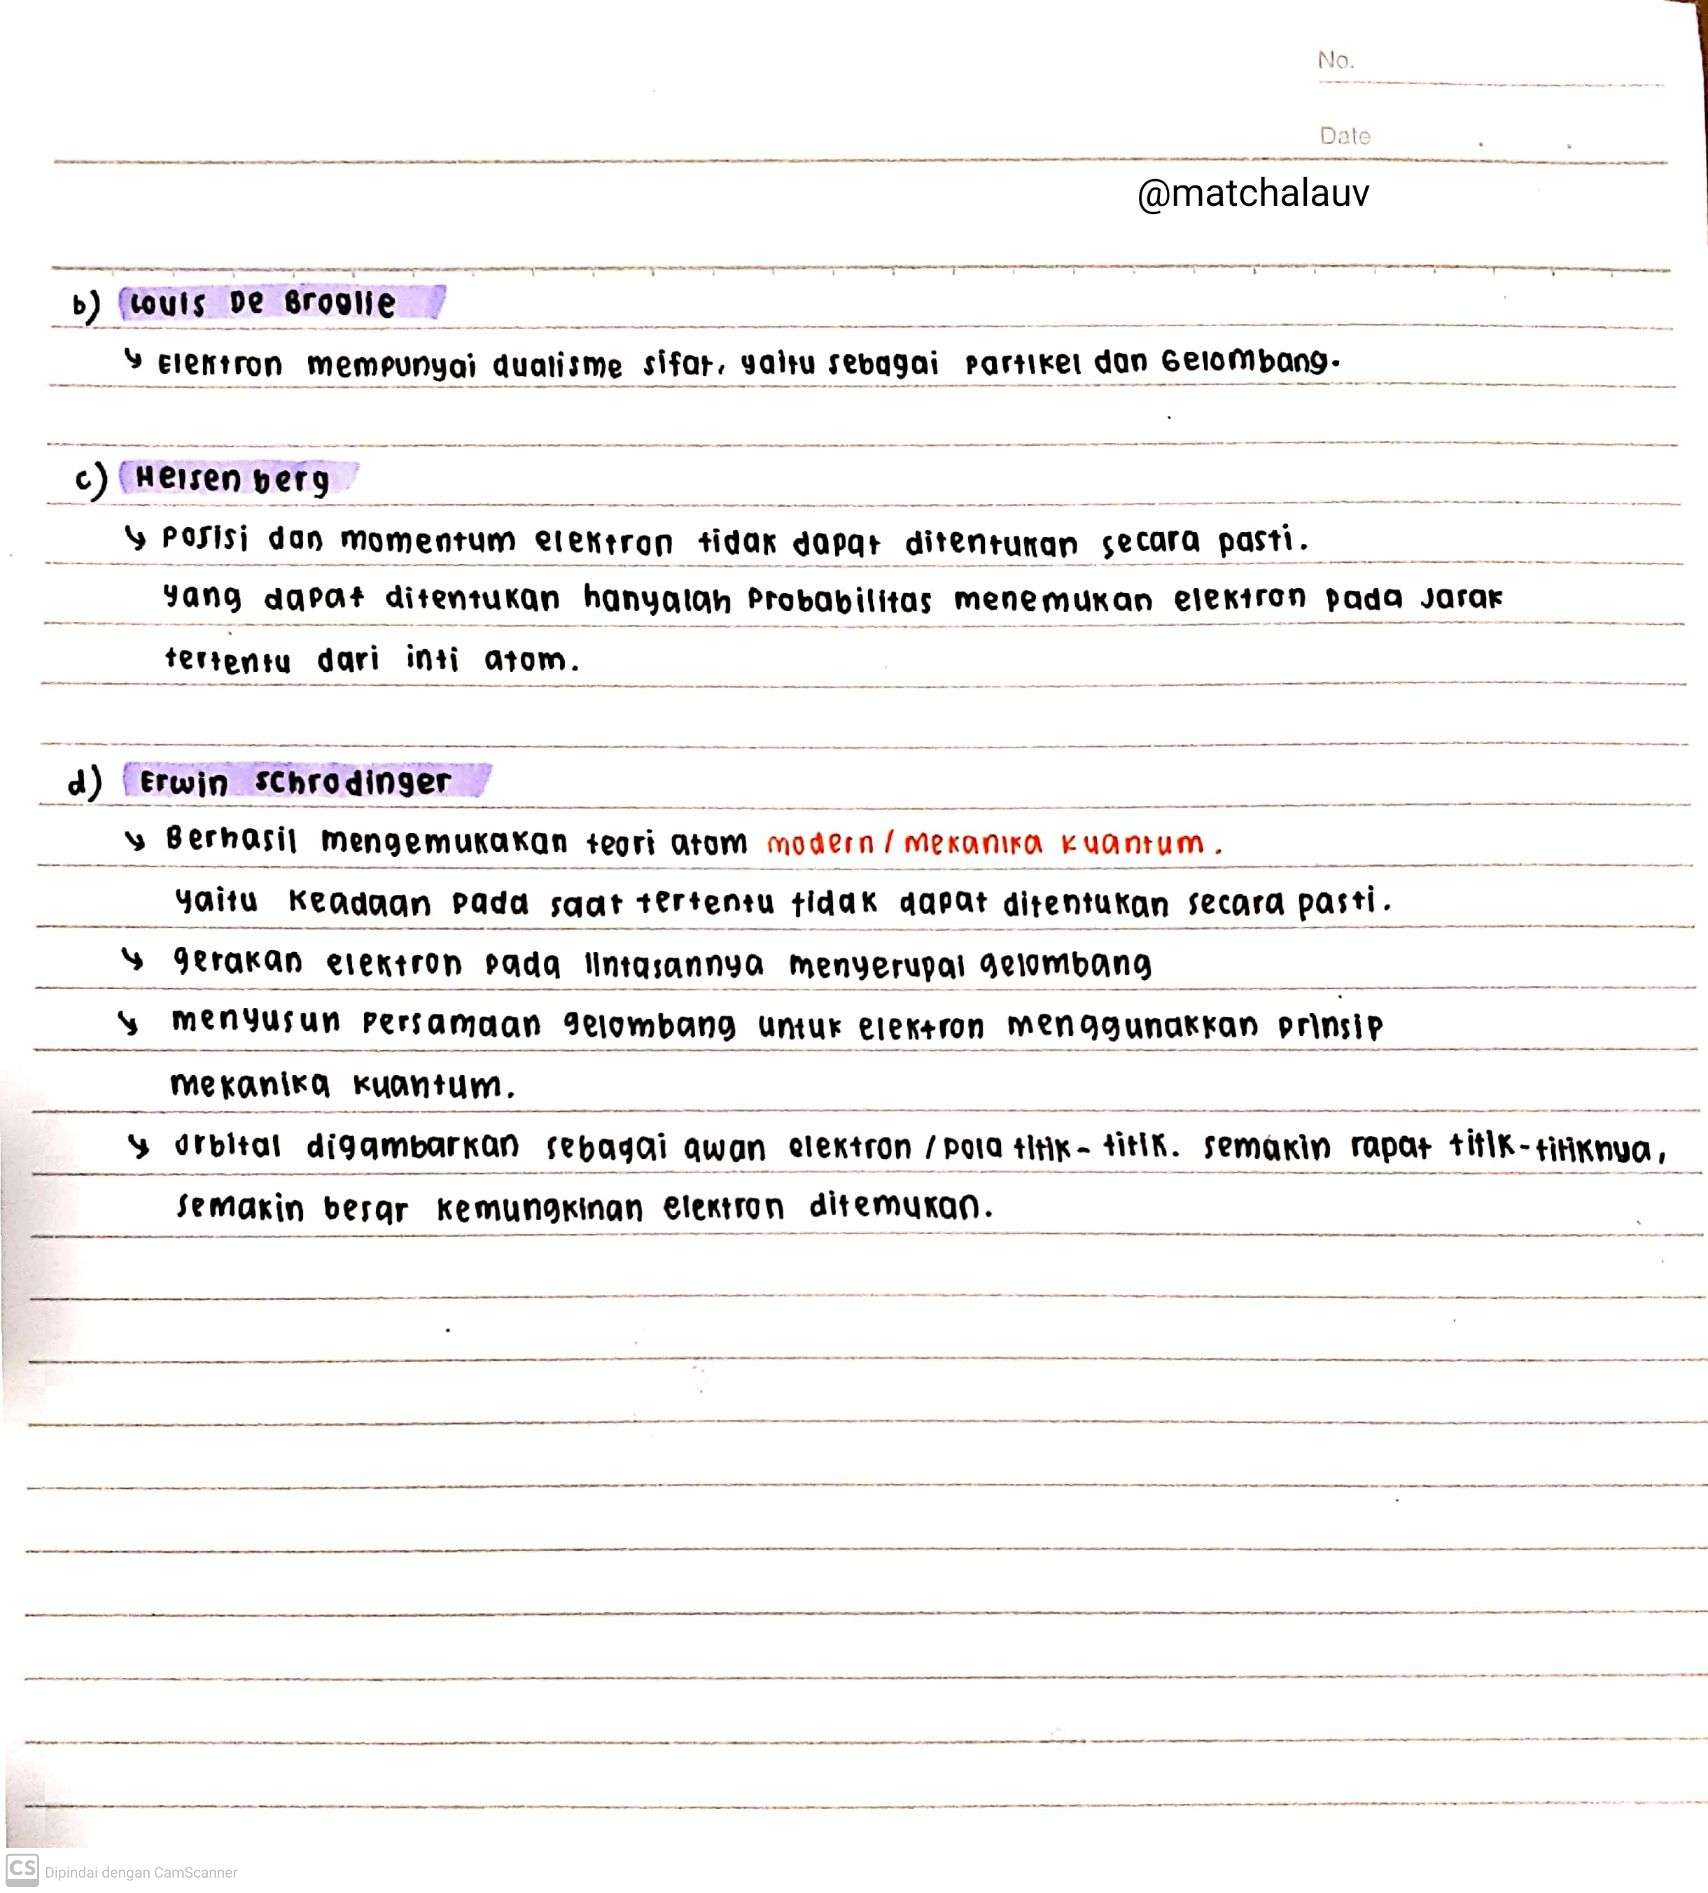 No.
Date
@matchalauv
b) Louis De Broglie
↳ Elektron mempunyai dualisme sifat, yaitu sebagai partikel dan Gelombang.
c) Heisen berg
↳ posisi dan momentum elektron tidak dapat ditentukan secara pasti.
yang dapat ditentukan hanyalah Probabilitas menemukan elektron pada Jarak
tertentu dari inti atom.
d) Erwin Schrodinger
↳ Berhasil mengemukakan teori atom modern / mekanika kuantum.
yaitu keadaan pada saat tertentu tidak dapat ditentukan secara pasti.
↳ gerakan elektron pada lintasannya menyerupai gelombang
↳ menyusun persamaan gelombang untuk elektron menggunakkan prinsip
mekanika kuantum.
↳ orbital digambarkan sebagai awan elektron / pola titik - titik. semakin rapat titik-titiknya,
semakin besar kemungkinan elektron ditemukan.
CS Dipindai dengan CamScanner